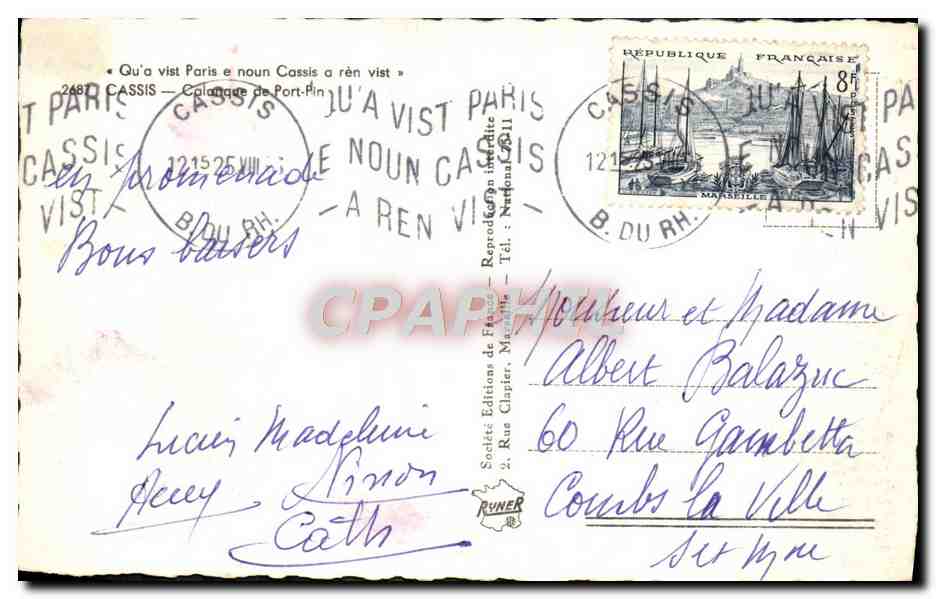 « Qu'a vist Paris e noun Cassis a rèn vist »
2687 CASSIS — Calanque de Port-Pin
T PARIS
CASSIS
VIST -
CASSIS
1215 25 VIII
B. DU RH.
QU'A VIST PARIS
E NOUN CASSIS
- A REN VIST -
CASSIS
B. DU RH.
RÉPUBLIQUE FRANÇAISE
8F
MARSEILLE
en promenade
Bons baisers
Lucien Madeleine
Ninon
Cath
Société Editions de France — Reproduction interdite
2, Rue Clapier, Marseille — Tél. : National 25-11
RYNER
CPAPHIL
Monsieur et Madame
Albert Balazuc
60 Rue Gambetta
Combs la Ville
Set Mne